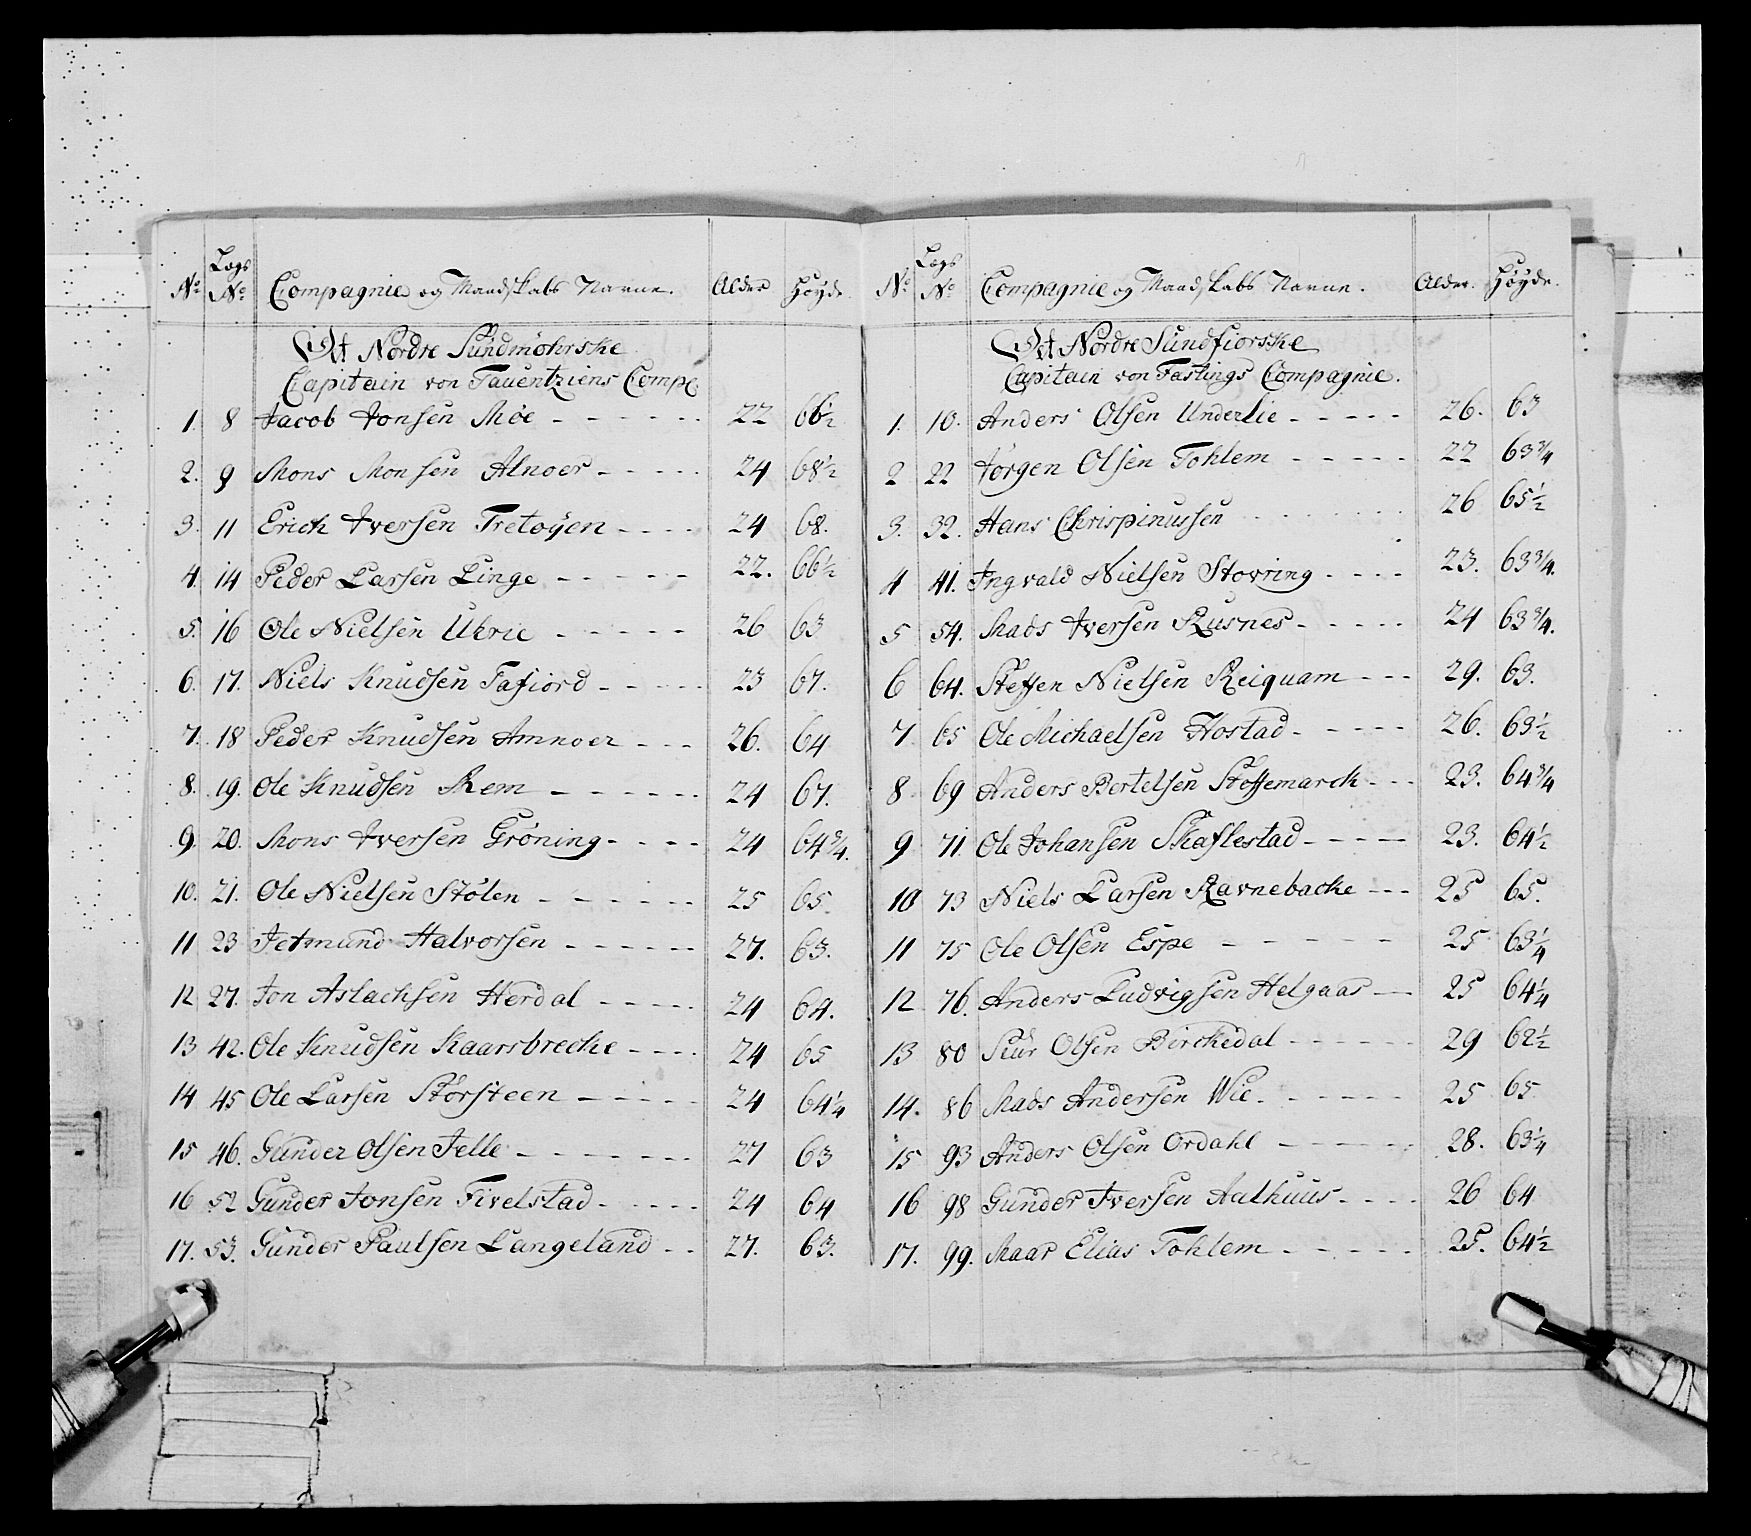 No Lægs No Compagnie og Mandskabs Navne. Alder Høyde
Det Nordre Sundmøhrske
Capitain von Tauentziens Compe.
1. 8 Jacob Jonsen Møe - - - - - - 22 66½
2. 9 Mons Monsen Alnoer - - - - - 24 68½
3. 11 Erich Iversen Tretøyen - - - - 24 68.
4. 14 Peder Larsen Linge - - - - - 22. 66½
5. 16 Ole Nielsen Uhrie - - - - - 26 63
6. 17. Niels Knudsen Tafiord - - - - - 23 67.
7. 18 Peder Knudsen Amnoer - - - 26. 64
8. 19. Ole Knudsen Rem - - - - - - 24 67.
9. 20. Mons Iversen Grøning - - - - 24 64¾.
10. 21. Ole Nielsen Stølen - - - - - - 25 65.
11 23 Jetmund Halvorsen - - - - - - 27. 63.
12 27. Jon Aslachsen Herdal - - - - - 24 64.
13 42. Ole Knudsen Kaarsbrecke - - - - 24 65
14 45 Ole Larsen Størsteen - - - - - 24 64¼
15 46. Gunder Olsen Jelle - - - - - - - 27 63
16 52 Gunder Jonsen Fivelstad - - - - - 24 64
17. 53. Gunder Paulsen Langeland - - 27. 63.
No Lægs No Compagnie og Mandskabs Navne. Alder. Høyde.
Det Nordre Sundfiorske
Capitain von Fastings Compagnie.
1. 10. Anders Olsen Underlie - - - - - 26. 63
2 22 Jørgen Olsen Tohlem - - - - - 22 63¾
3. 32. Hans Chrispinussen - - - - - - 26 65½
4 41. Ingvald Nielsen Stovring - - - - 23. 63¾.
5 54. Mads Iversen Rusnes - - - - - 24 63¾.
6 64. Steffen Nielsen Reiquam - - - 29. 63.
7 65 Ole Michaelsen Hostad - - - - - 26. 63½
8 69 Anders Bertelsen Stoffemarck - - - 23. 64¾
9 71 Ole Johansen Skaflestad - - - - - 23. 64½
10 73 Niels Larsen Ravnebacke - - - 25 65.
11 75 Ole Olsen Espe - - - - - 25 63¼
12 76. Anders Ludvigsen Helgaas - - 25 64¼
13 80 Siur Olsen Birckedal - - - - - - 29 62½
14. 86 Mads Andersen Wie - - - - - - 25 65
15 93 Anders Olsen Ordahl - - - - - - 28. 63¼
16 98 Gunder Iversen Aalhuus - - - - 26 64
17. 99. Maar Elias Tohlem - - - - - 25. 64½